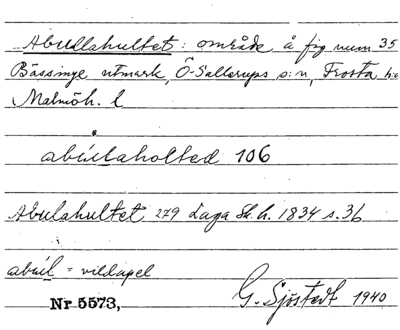 Abullahultet: område å fig num 35
Bässinge utmark, Ö-Sallerups s:n, Frosta h:d
Malmöh. l
abúllaholted 106
Abulahultet 279 Laga Sk. h. 1834 s. 36
abúl = vildapel
Nr 5573, G. Sjöstedt 1940